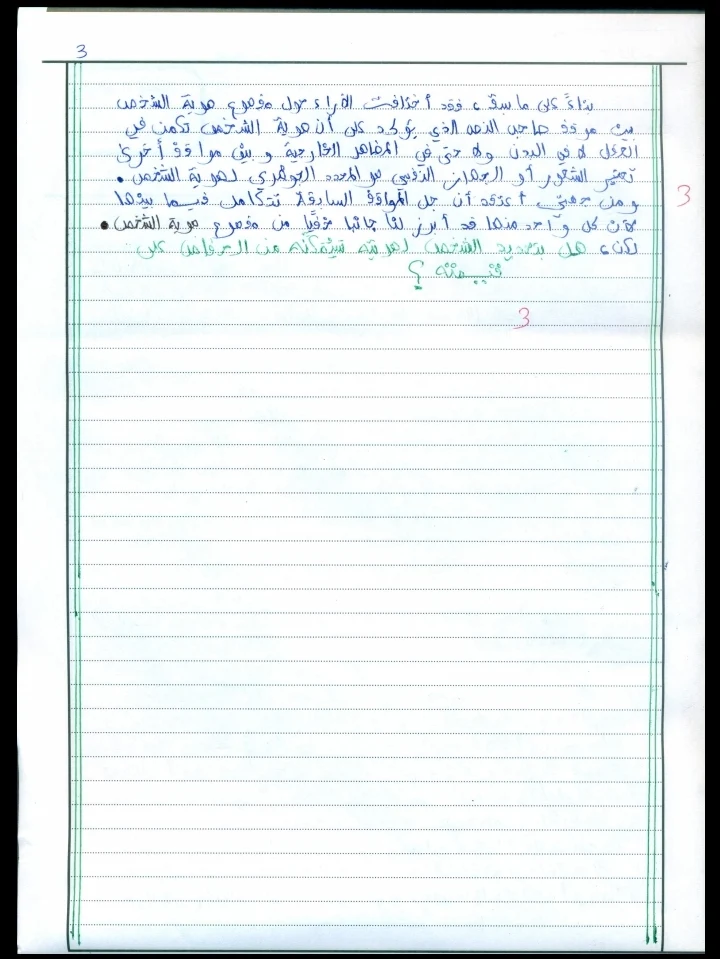 3
بناءً على ما سبق، فقد اختلفت الآراء حول موضوع هوية الشخص
بين موقف صاحب النص الذي يؤكد على أن هوية الشخص تكمن في
العقل لا في البدن ولا حتى في المظاهر الخارجية وبين مواقف أخرى
تعتبر الشعور أو الجهاز النفسي هو المحدد الجوهري لهوية الشخص.
ومن جهتي أعتقد أن جل المواقف السابقة تتكامل فيما بينها
3
لأن كل واحد منها قد أبرز لنا جانبا خفيا من موضوع هوية الشخص.
لكن، هل بتحديد الشخص لهويته
قيمته؟
3